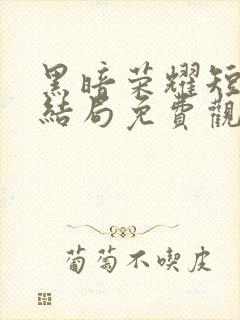 黑暗荣耀短
結局免費觀
葡萄不喫皮